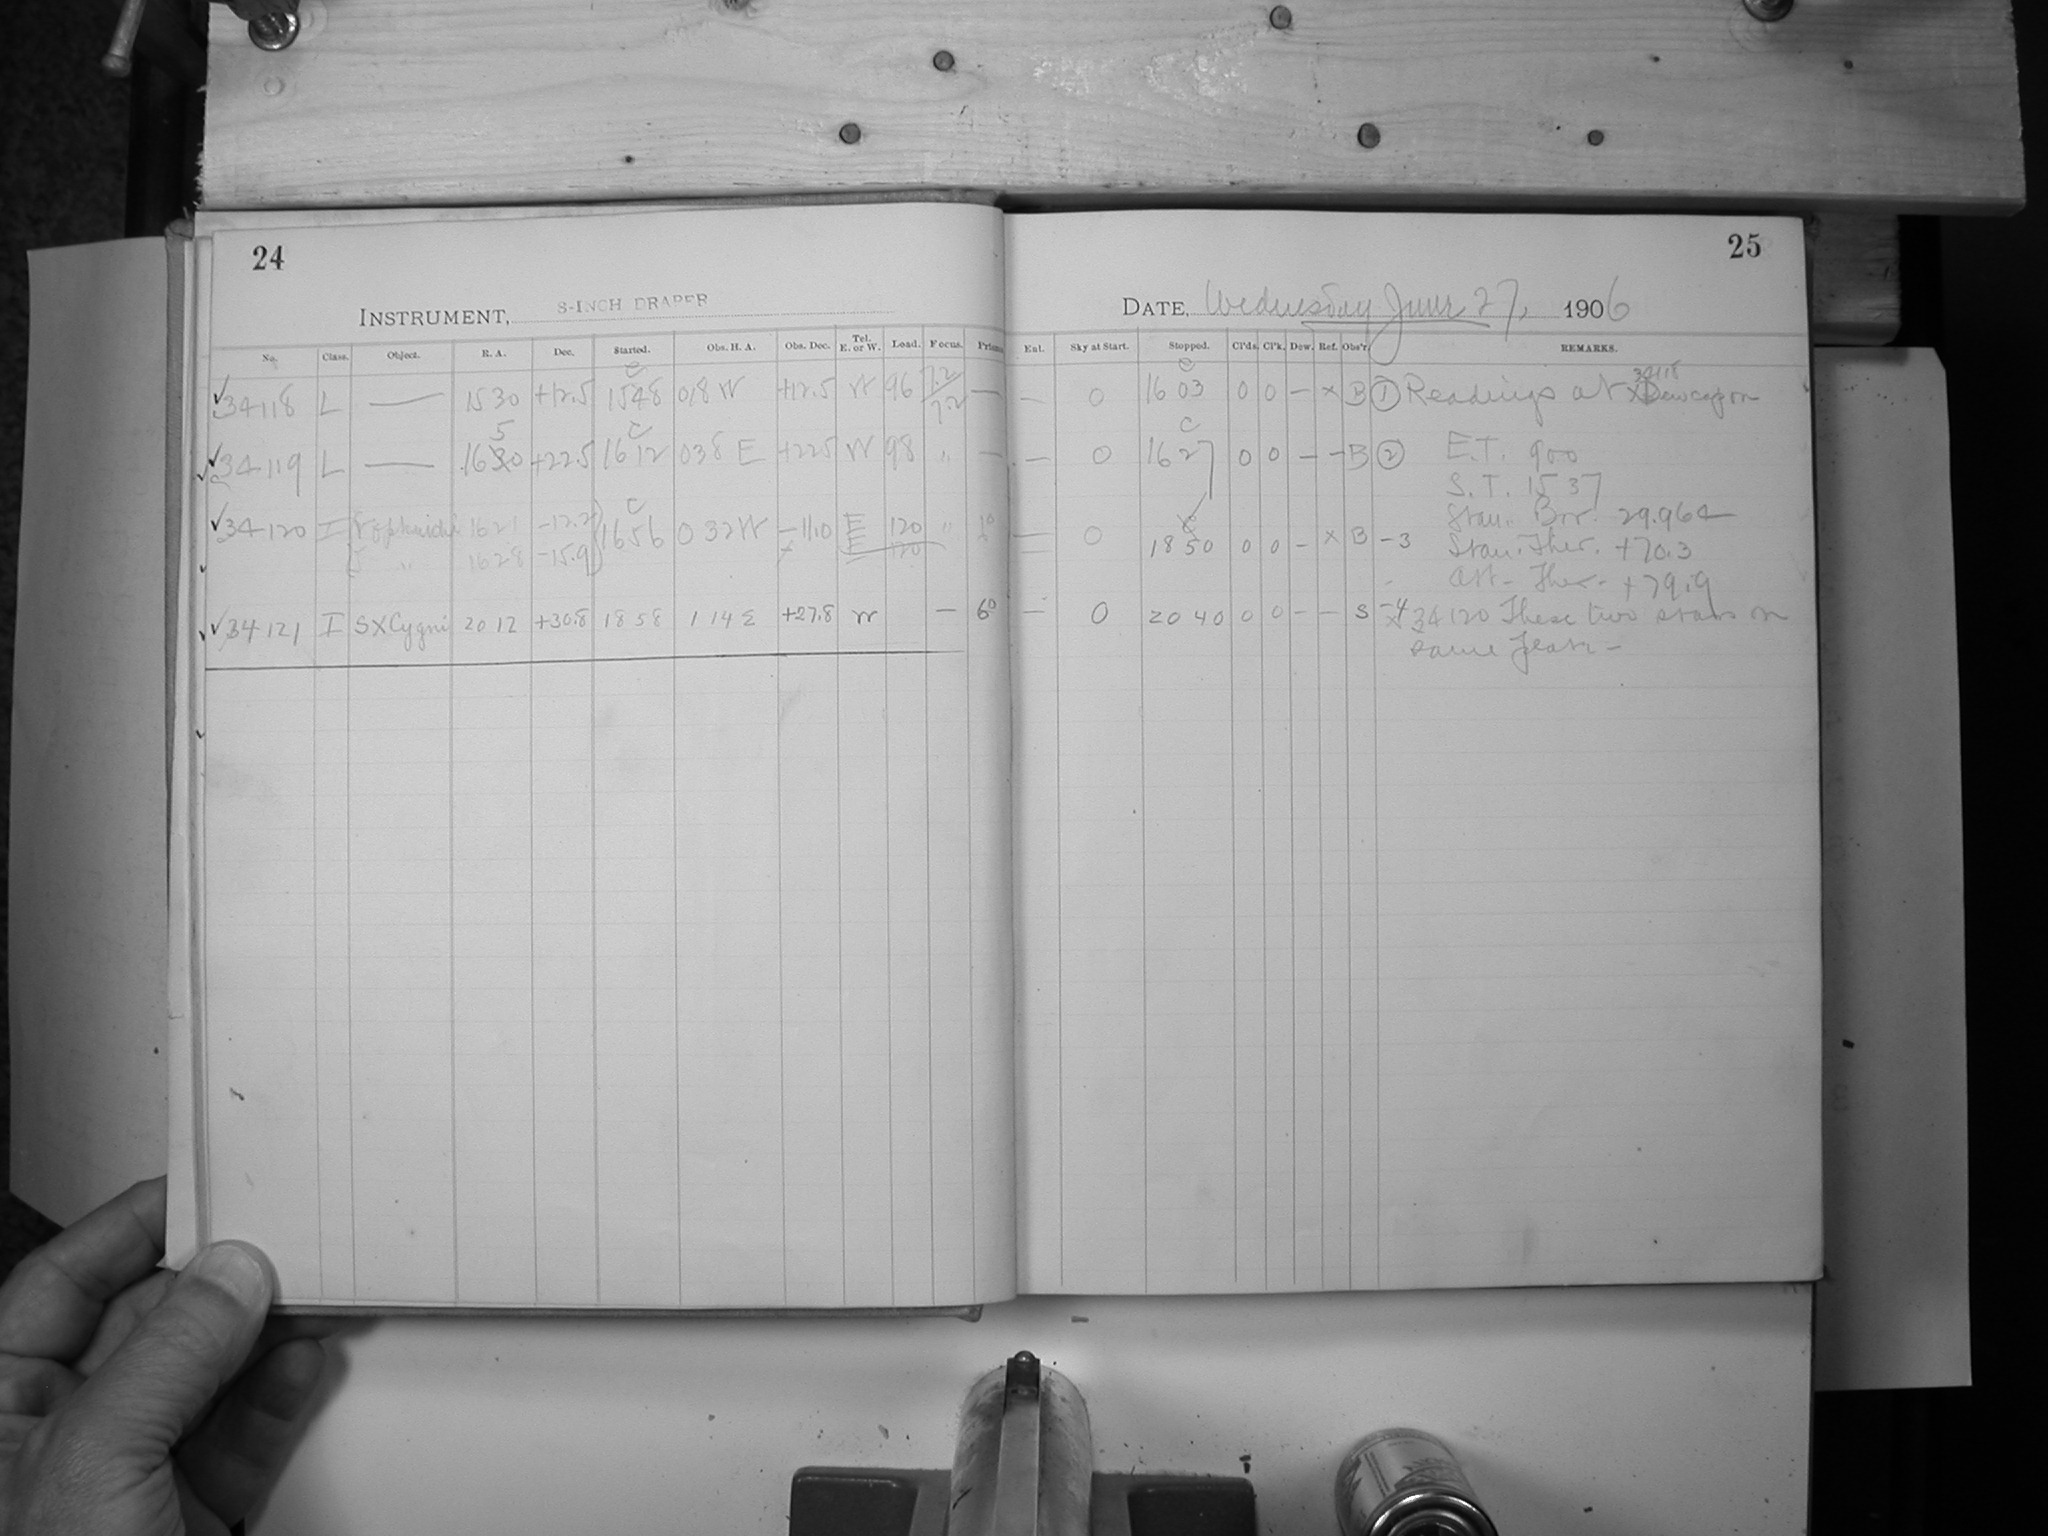 24
INSTRUMENT, 8-INCH DRAPER
No. Class. Object. R. A. Dec. Started. Obs. H. A. Obs. Dec. Tel. E. or W. Load. Focus. Prism
34118 L — 1530 +12.5 1548 018 W +12.5 W 96 7.2 —
34119 L — 1650 +22.5 1612 038 E +22.5 W 98 " —
34120 I V Ophiuchi 1621 -12.2 1656 0 32 W -11.0 E 120 " 1°
" 1628 -15.9 E 120
34121 I SX Cygni 20 12 +30.8 18 58 1 14 E +27.8 W — 6°
25
DATE, Wednesday June 27, 1906
Ent. Sky at Start. Stopped. Cl'ds. Cl'k. Dew. Ref. Obs'r. REMARKS.
— 0 1603 0 0 — x B ① Readings at 34118 Dewcap on
— 0 1627 0 0 — — B ② E.T. 900
S.T. 1537
— 0 1850 0 0 — x B -3 Stan. Bar. 29.964
Stan. Ther. +70.3
Att. Ther. +79.9
— 0 20 40 0 0 — — S -4 34120 These two stars on
same plate —